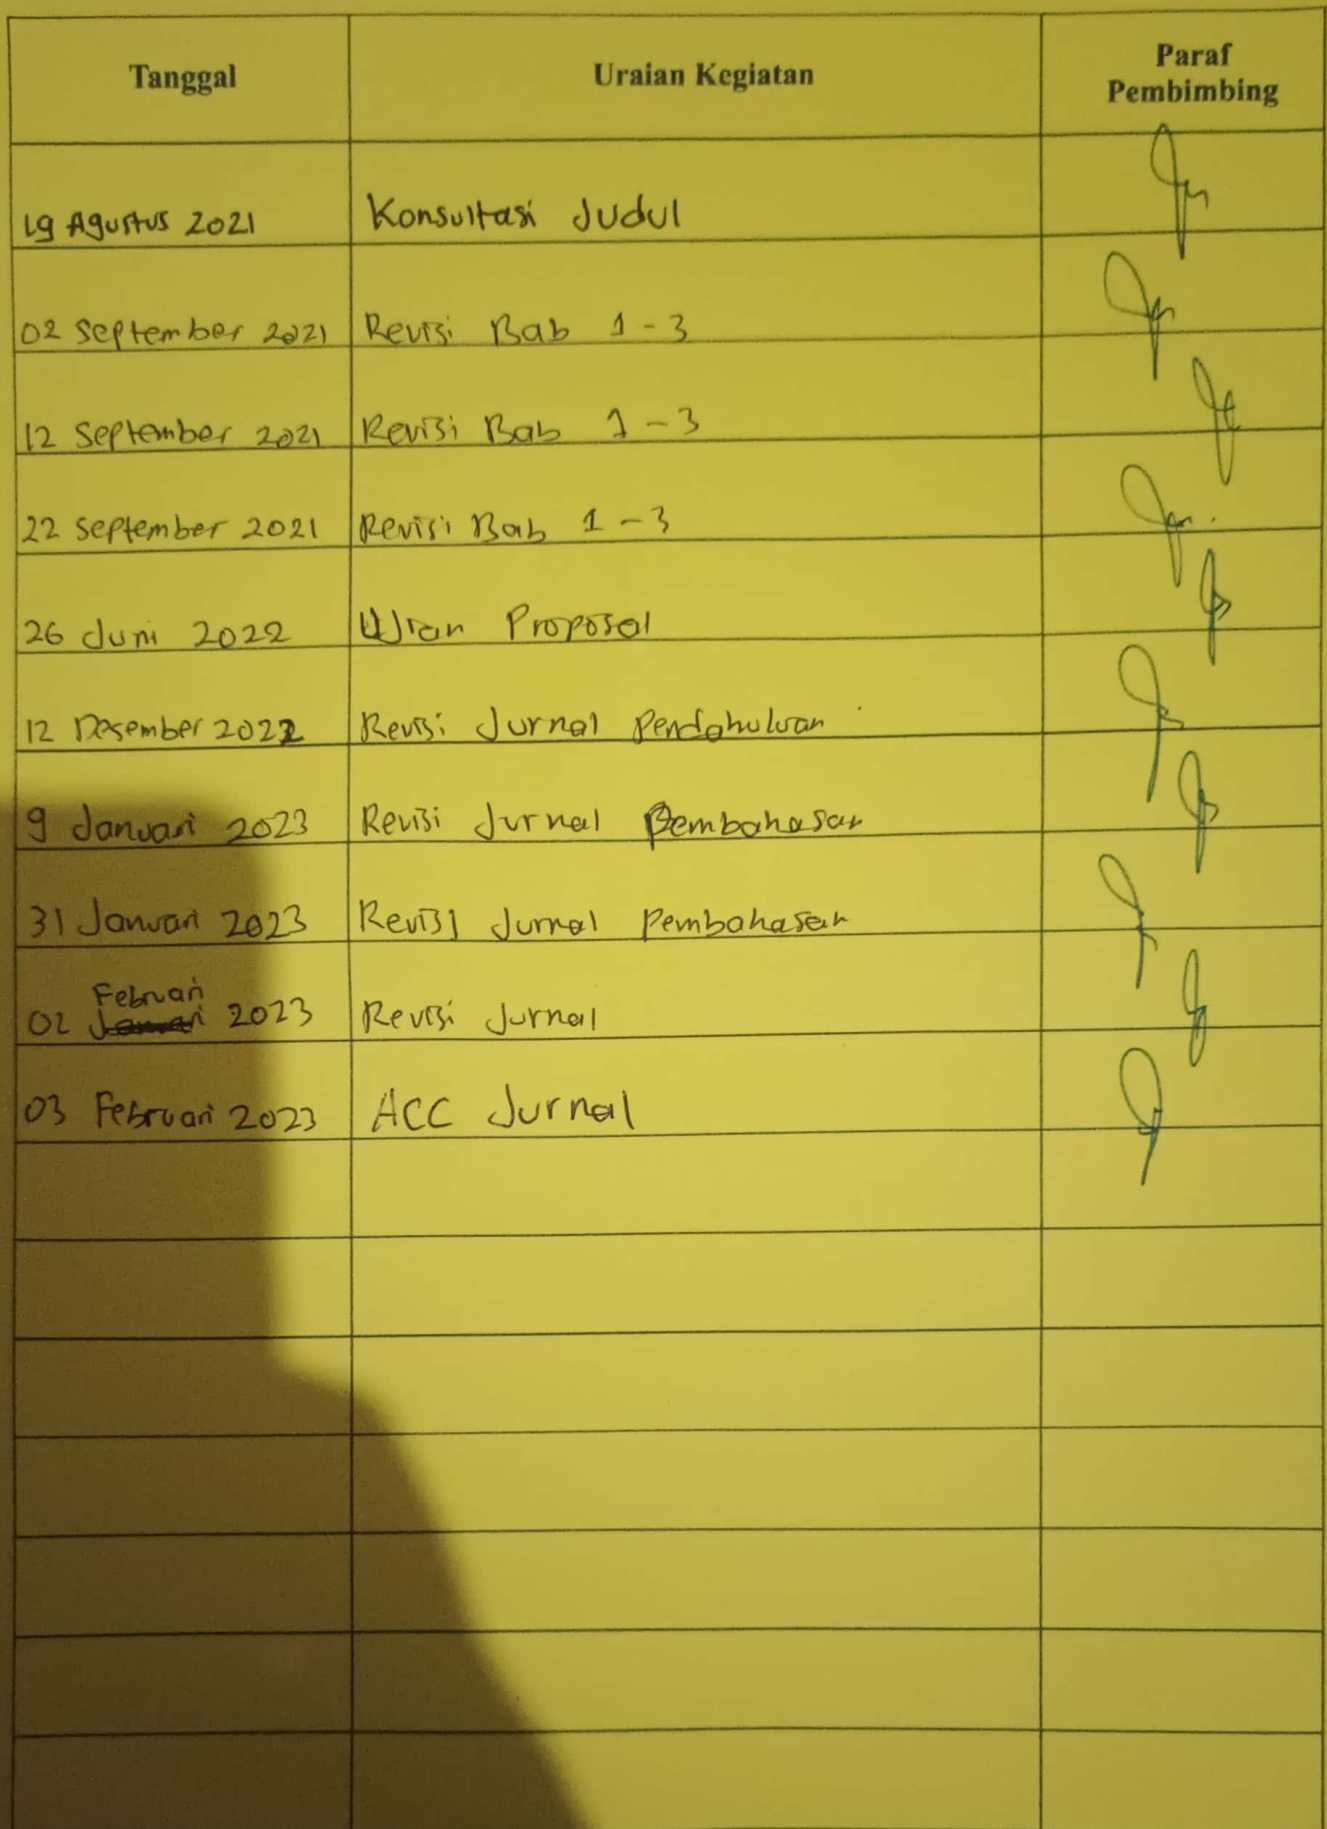 Tanggal Uraian Kegiatan Paraf
Pembimbing
19 Agustus 2021 Konsultasi Judul
02 September 2021 Revisi Bab 1-3
12 September 2021 Revisi Bab 1-3
22 September 2021 Revisi Bab 1-3
26 Juni 2022 Ujian Proposal
12 Desember 2022 Revisi Jurnal Pendahuluan
9 Januari 2023 Revisi Jurnal Pembahasan
31 Januari 2023 Revisi Jurnal Pembahasan
02 Februari 2023 Revisi Jurnal
03 Februari 2023 ACC Jurnal